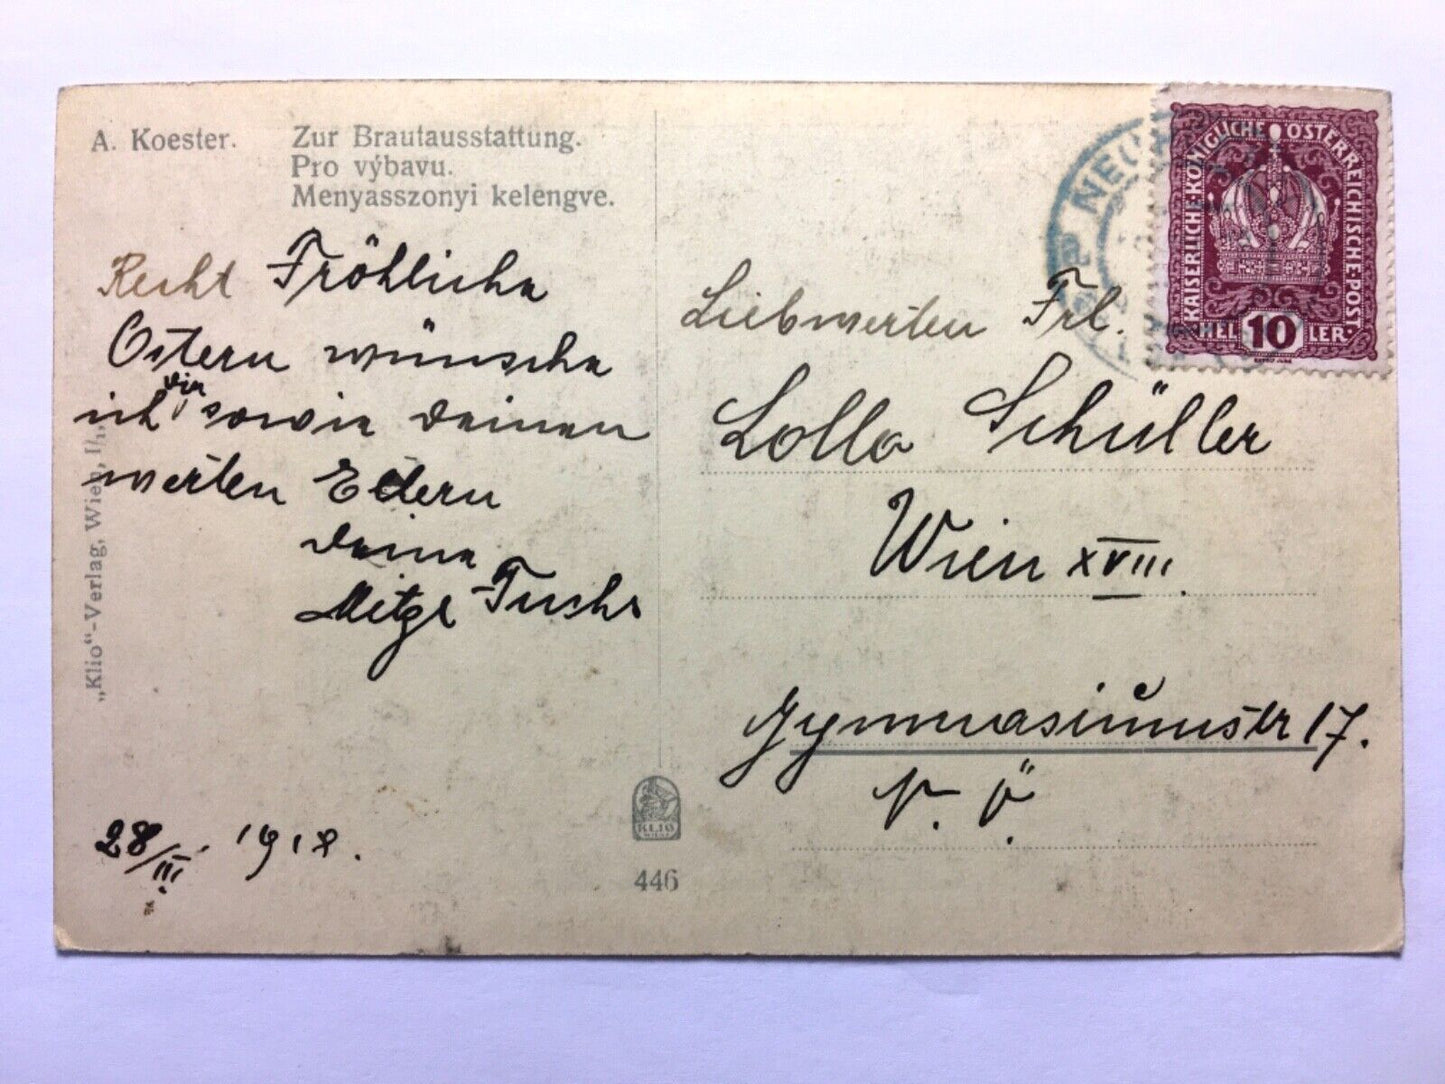 A. Koester.
Zur Brautausstattung.
Pro výbavu.
Menyasszonyi kelengye.
Recht Fröhliche
Ostern wünsche
ich dir sowie deinen
werten Eltern
deine
Mitzi Fuchs
28/III. 1918.
„Klio“-Verlag, Wien, I/1,
KLIO
WIEN
446
NEU
KAISERLICHE KÖNIGLICHE ÖSTERREICHISCHE POST
HELLER
10
Liebwerten Frl.
Lolla Schüller
Wien XVIII.
Gymnasiumstr 17.
N. Ö.